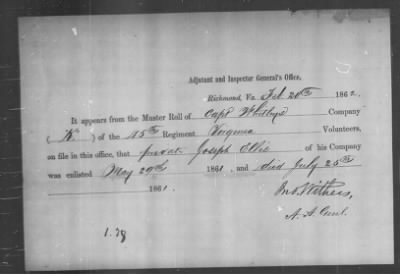 Adjutant and Inspector General's Office,
Richmond, Va. Feb. 20th 1862.
It appears from the Muster Roll of Capt Company
(K) of the 45th Regiment Virginia Volunteers,
on file in this office, that private Joseph of his Company
was enlisted May 29th 1861, and died July 25th
1861.
Jno. Withers,
A. A. Genl.
1.78